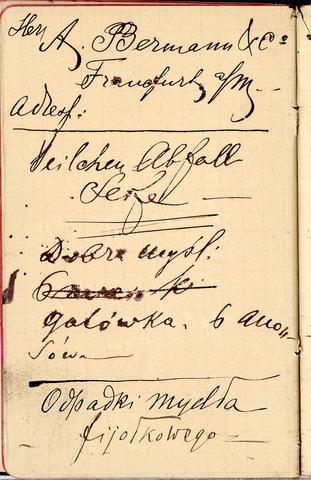 Herr A. Bermann & Co
Francfurt a/M.
Adress:
Veilchen Abfall
Seife —
Dobre mydł.
gotówka. 6 anon-
sów
Odpadki mydła
fijołkowego —